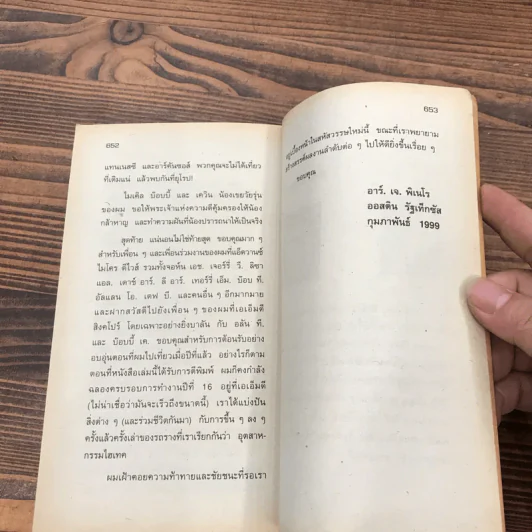 652
แทนเนสซี และอาร์คันซอส์ พวกคุณจะไม่ได้เที่ยว
ที่เดิมแน่ แล้วพบกันที่ยุโรป!
ไมเคิล บ๊อบบี้ และ เควิน น้องเขยวัยรุ่น
ของผม ขอให้พระเจ้าแห่งความดีคุ้มครองให้น้อง
กล้าหาญ และทำความฝันที่น้องปรารถนาให้เป็นจริง
สุดท้าย แน่นอนไม่ใช่ท้ายสุด ขอบคุณมาก ๆ
สำหรับเพื่อน ๆ และเพื่อนร่วมงานของผมที่แอ๊ดวานซ์
ไมโคร ดีไวส์ รวมทั้งจอห์น เอช. เจอร์รี่ วี. ลิซา
แอล. เดาซ์ อาร์. ลี อาร์. เทอร์รี่ เอ็ม. บ๊อบ ที.
อัลแลน โอ. เดฟ บี. และคนอื่น ๆ อีกมากมาย
และฝากสวัสดีไปยังเพื่อน ๆ ของผมที่เอเอ็มดี
สิงคโปร์ โดยเฉพาะอย่างยิ่งบาลัน กับ อลัน ที.
และ บ๊อบบี้ เค. ขอบคุณสำหรับการต้อนรับอย่าง
อบอุ่นตอนที่ผมไปเที่ยวเมื่อปีที่แล้ว อย่างไรก็ตาม
ตอนที่หนังสือเล่มนี้ได้รับการตีพิมพ์ ผมก็คงกำลัง
ฉลองครบรอบการทำงานปีที่ 16 อยู่ที่เอเอ็มดี
(ไม่น่าเชื่อว่ามันจะเร็วถึงขนาดนี้) เราได้แบ่งปัน
สิ่งต่าง ๆ (และร่วมชีวิตกันมา) กับการขึ้น ๆ ลง ๆ
ครั้งแล้วครั้งเล่าของรถรางที่เราเรียกกันว่า อุตสาห-
กรรมไฮเทค
ผมเฝ้าคอยความท้าทายและชัยชนะที่รอเรา
653
อยู่เบื้องหน้าในสหัสวรรษใหม่นี้ ขณะที่เราพยายาม
สร้างสรรค์ผลงานลำดับต่อ ๆ ไปให้ดียิ่งขึ้นเรื่อย ๆ
ขอบคุณ
อาร์. เจ. พิเนโร
ออสติน รัฐเท็กซัส
กุมภาพันธ์ 1999